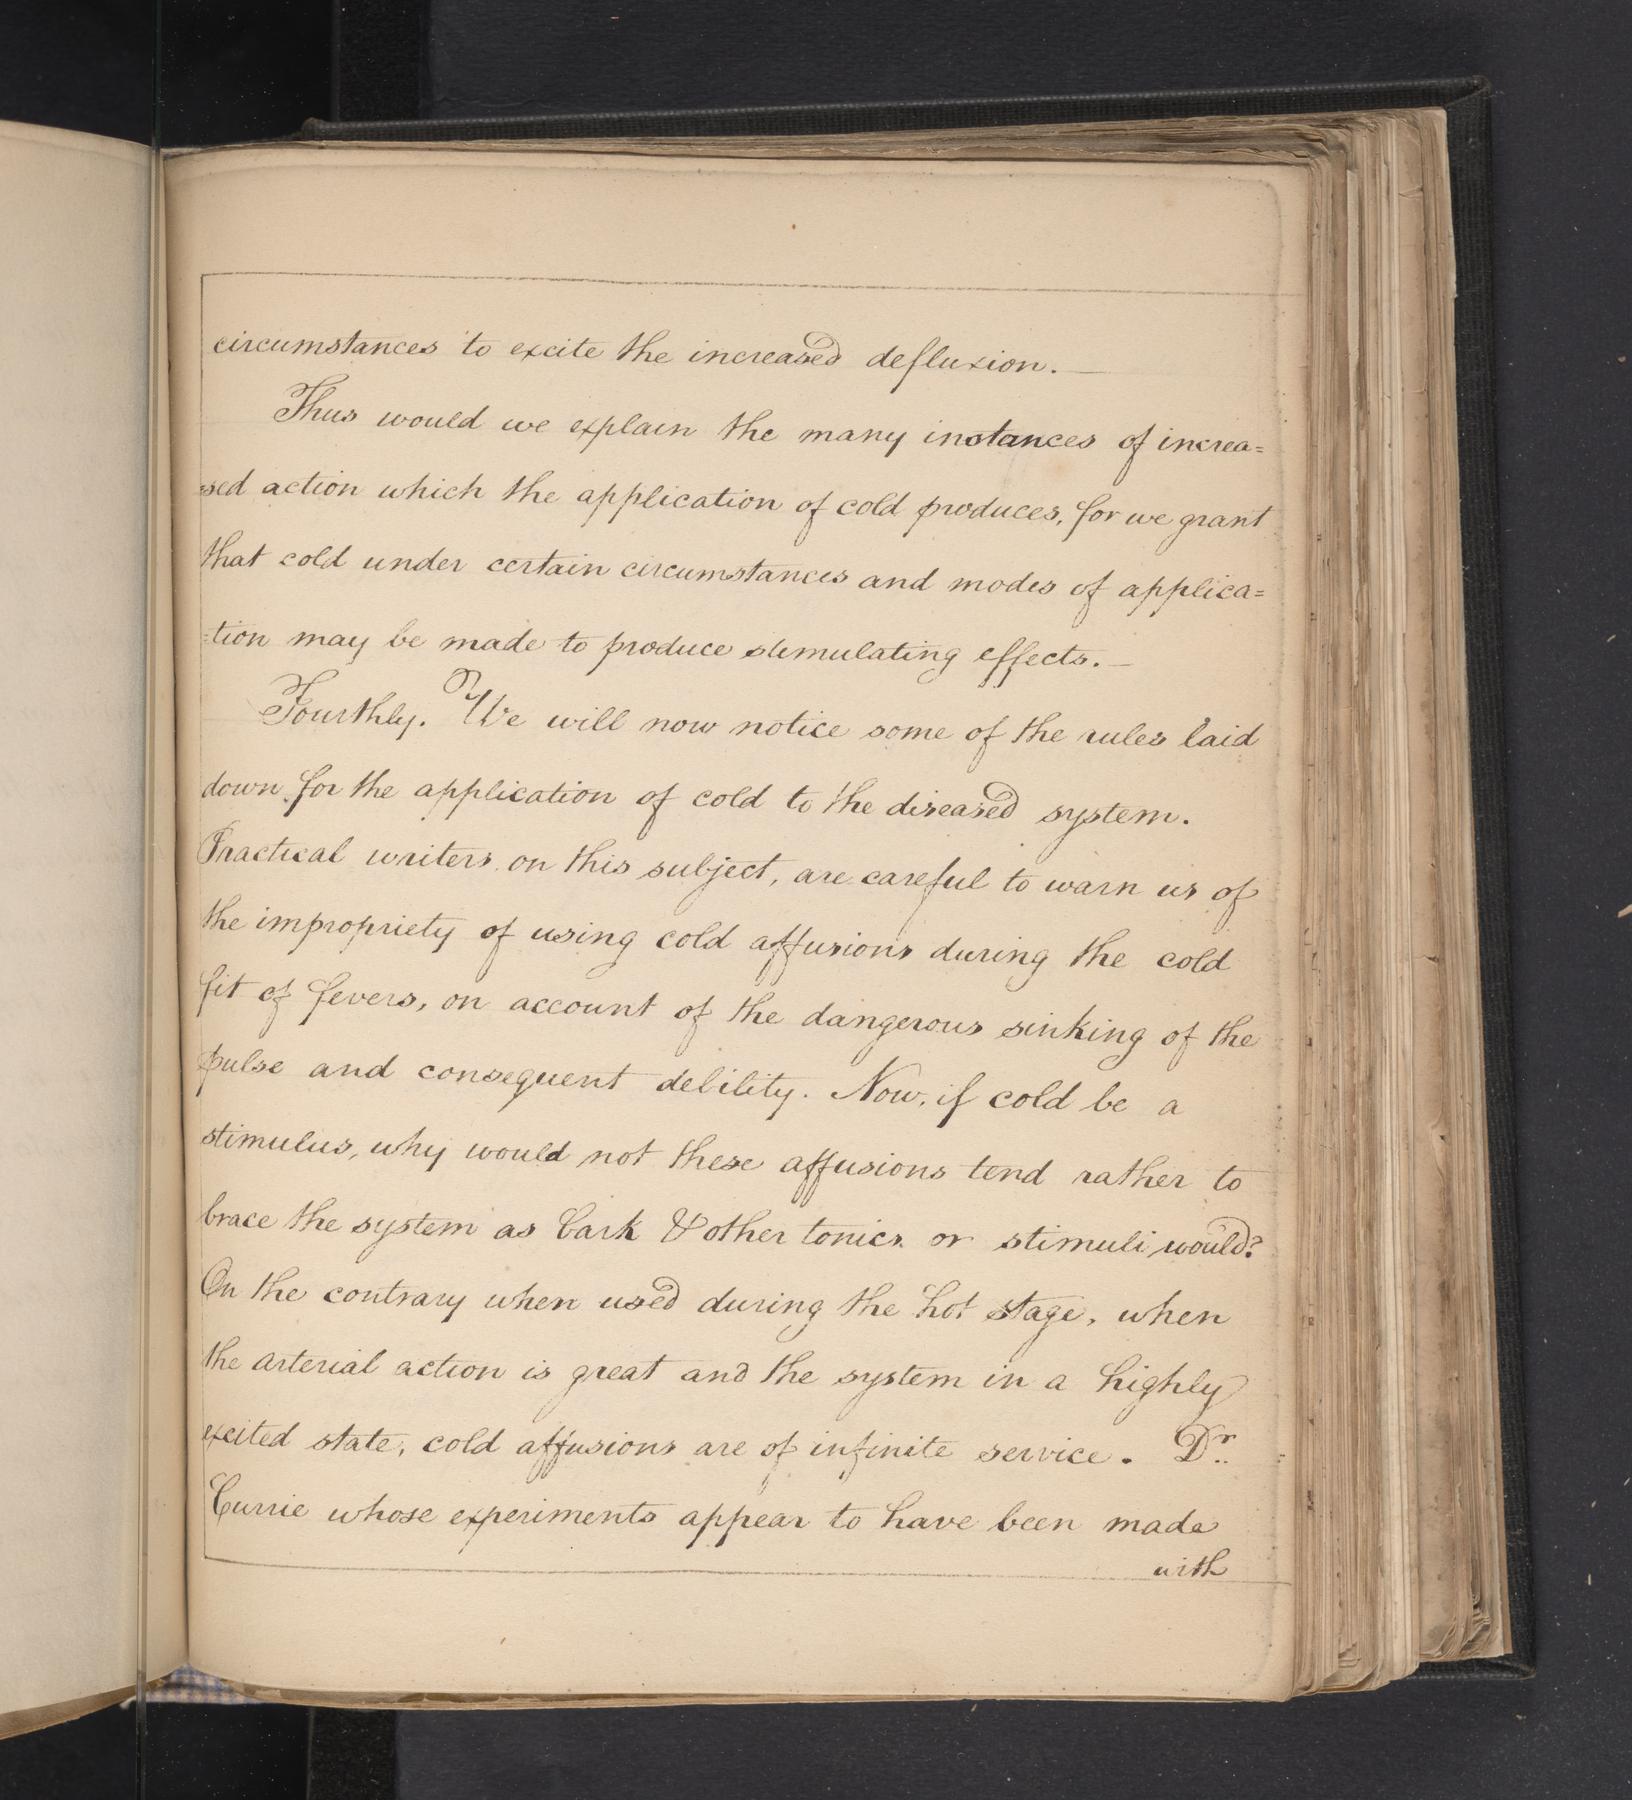 circumstances to excite the increased defluxion. —
Thus would we explain the many instances of increa=
=sed action which the application of cold produces, for we grant
that cold under certain circumstances and modes of applica=
=tion may be made to produce stimulating effects. —
Fourthly. We will now notice some of the rules laid
down for the application of cold to the diseased system.
Practical writers on this subject, are careful to warn us of
the impropriety of using cold affusions during the cold
fit of fevers, on account of the dangerous sinking of the
pulse and consequent debility. Now, if cold be a
stimulus, why would not these affusions tend rather to
brace the system as bark & other tonics or stimuli would?
On the contrary when used during the hot stage, when
the arterial action is great and the system in a highly
excited state, cold affusions are of infinite service. Dr.
Currie whose experiments appear to have been made
with